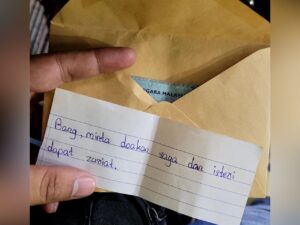 GARA MALAY
Bang, minta doakan saya dan isteri
dapat zuriat.